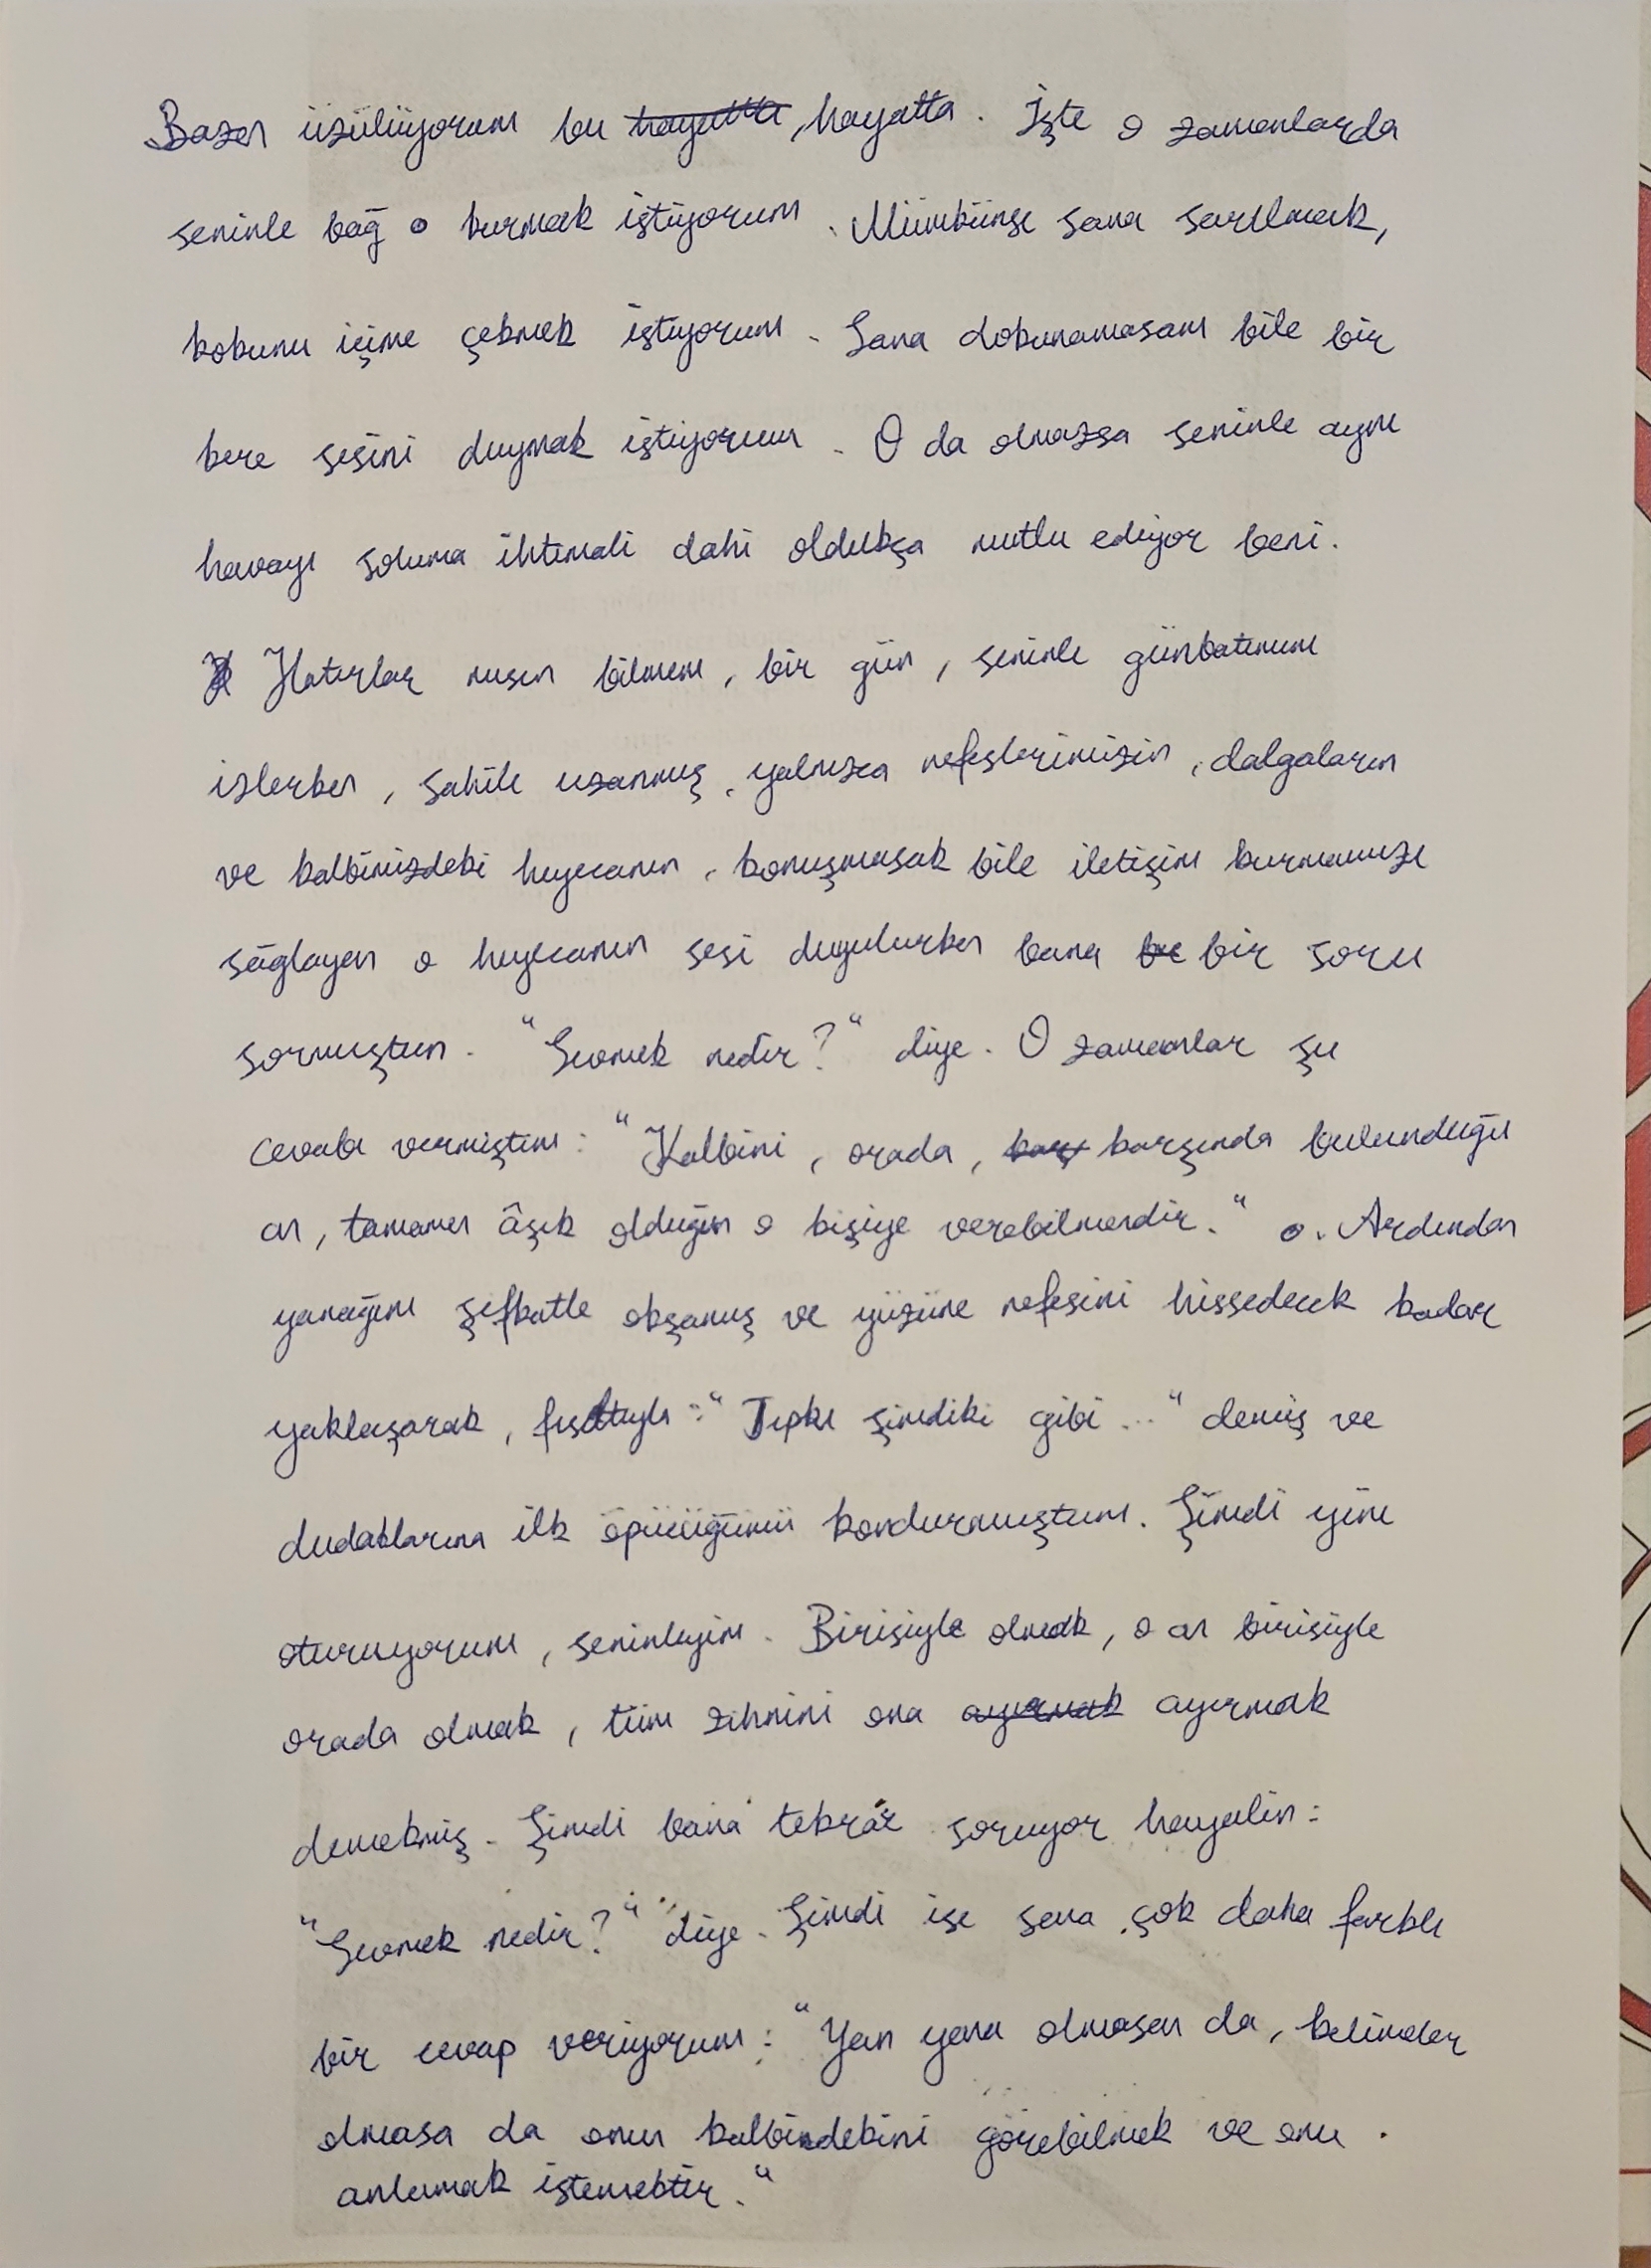 Bazen üzülüyorum bu hayatta, hayatta. İşte o zamanlarda
seninle bağ kurmak istiyorum. Mümkünse sana sarılmak,
kokunu içime çekmek istiyorum. Sana dokunamasam bile bir
kere sesini duymak istiyorum. O da olmazsa seninle aynı
havayı soluma ihtimali dahi oldukça mutlu ediyor beni.
Hatırlar mısın bilmem, bir gün, seninle günbatımını
izlerken, sahile uzanmış, yalnızca nefeslerimizin, dalgaların
ve kalbimizdeki heyecanın, konuşmasak bile iletişim kurmamızı
sağlayan o heyecanın sesi duyulurken bana bir soru
sormuştun. "Sevmek nedir?" diye. O zamanlar şu
cevabı vermiştim: "Kalbini, orada, karş karşında bulunduğu
an, tamamen âşık olduğun o kişiye verebilmendir." Ardından
yanağını şefkatle okşamış ve yüzüne nefesini hissedecek kadar
yaklaşarak, fısıltıyla: "Tıpkı şimdiki gibi..." demiş ve
dudaklarına ilk öpücüğümü kondurmuştum. Şimdi yine
oturuyorum, seninleyim. Birisiyle olmak, o an birisiyle
orada olmak, tüm zihnini ona ayırmak ayırmak
demekmiş. Şimdi bana tekrar soruyor hayalin:
"Sevmek nedir?" diye. Şimdi ise sana çok daha farklı
bir cevap veriyorum: "Yan yana olmasan da, kelimeler
olmasa da onun kalbindekini görebilmek ve onu
anlamak istemektir."